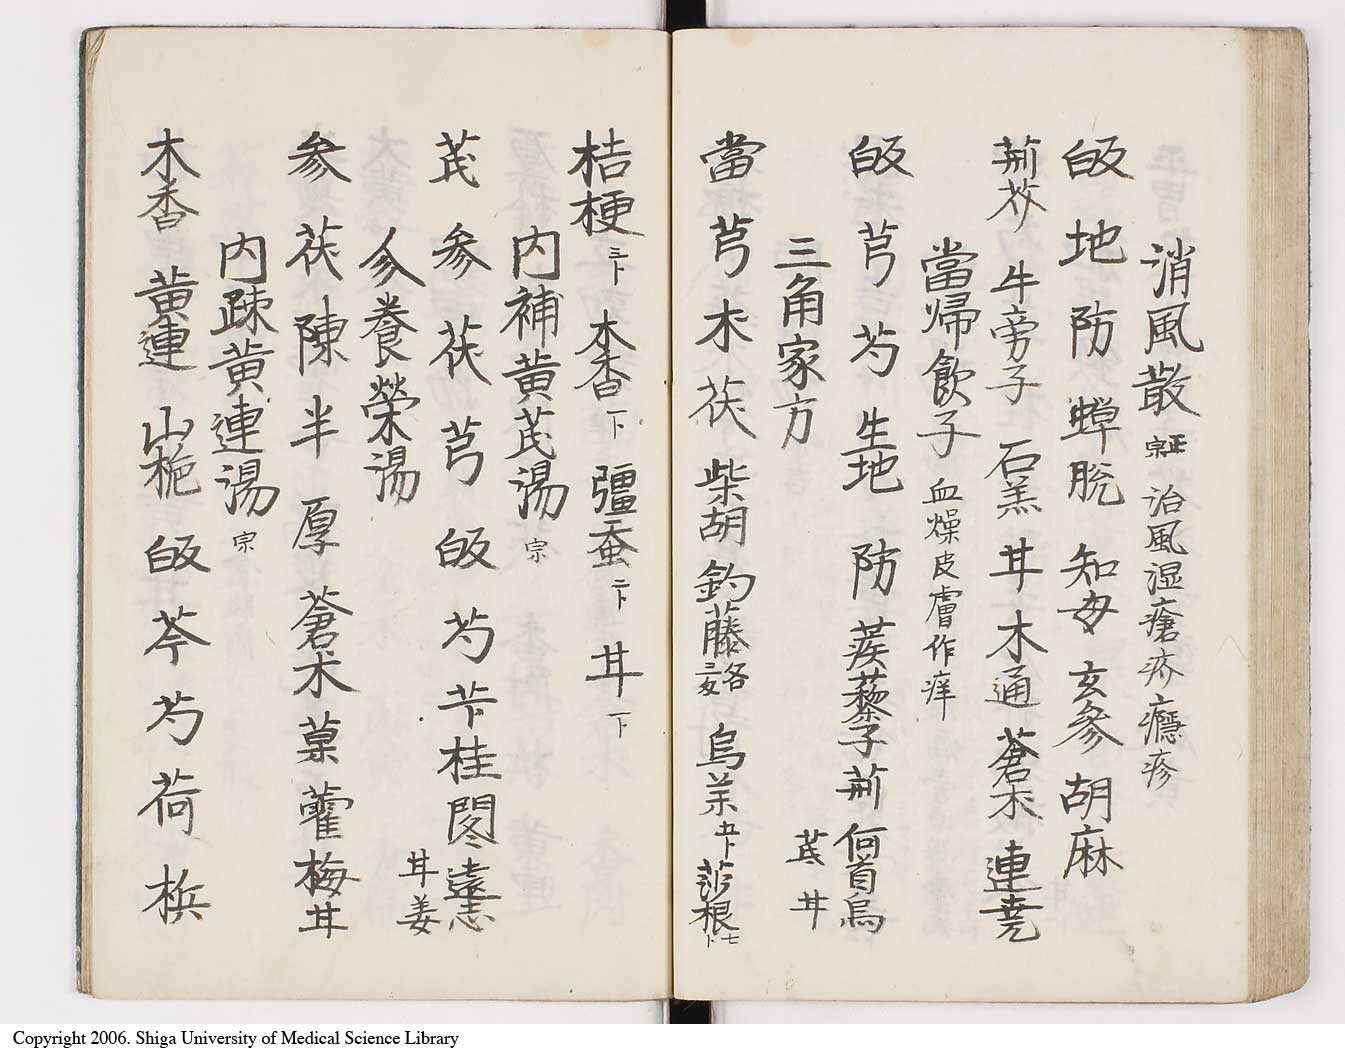 消風散 正宗 治風湿瘡疥癮疹
皈 地 防 蟬脱 知母 玄参 胡麻
荊芥 牛旁子 石羔 甘 木通 蒼朮 連堯
當帰飲子 血燥皮膚作痒
皈 芎 芍 生地 防 蒺藜子 荊 何首烏
芪 甘
三角家方
當 芎 朮 茯 柴胡 釣藤 各三戔 烏羊 五卜 根 七卜
桔梗 三卜 木香 一卜 彊蚕 二卜 甘 一卜
内補黄芪湯 宗
芪 参 茯 芎 皈 芍 苄 桂 閣 遠志
甘 姜
人参養榮湯
参 茯 陳 半 厚 蒼朮 菓 藿 梅 甘
内疎黄連湯 宗
木香 黄連 山梔 皈 芩 芍 荷 梹
Copyright 2006. Shiga University of Medical Science Library